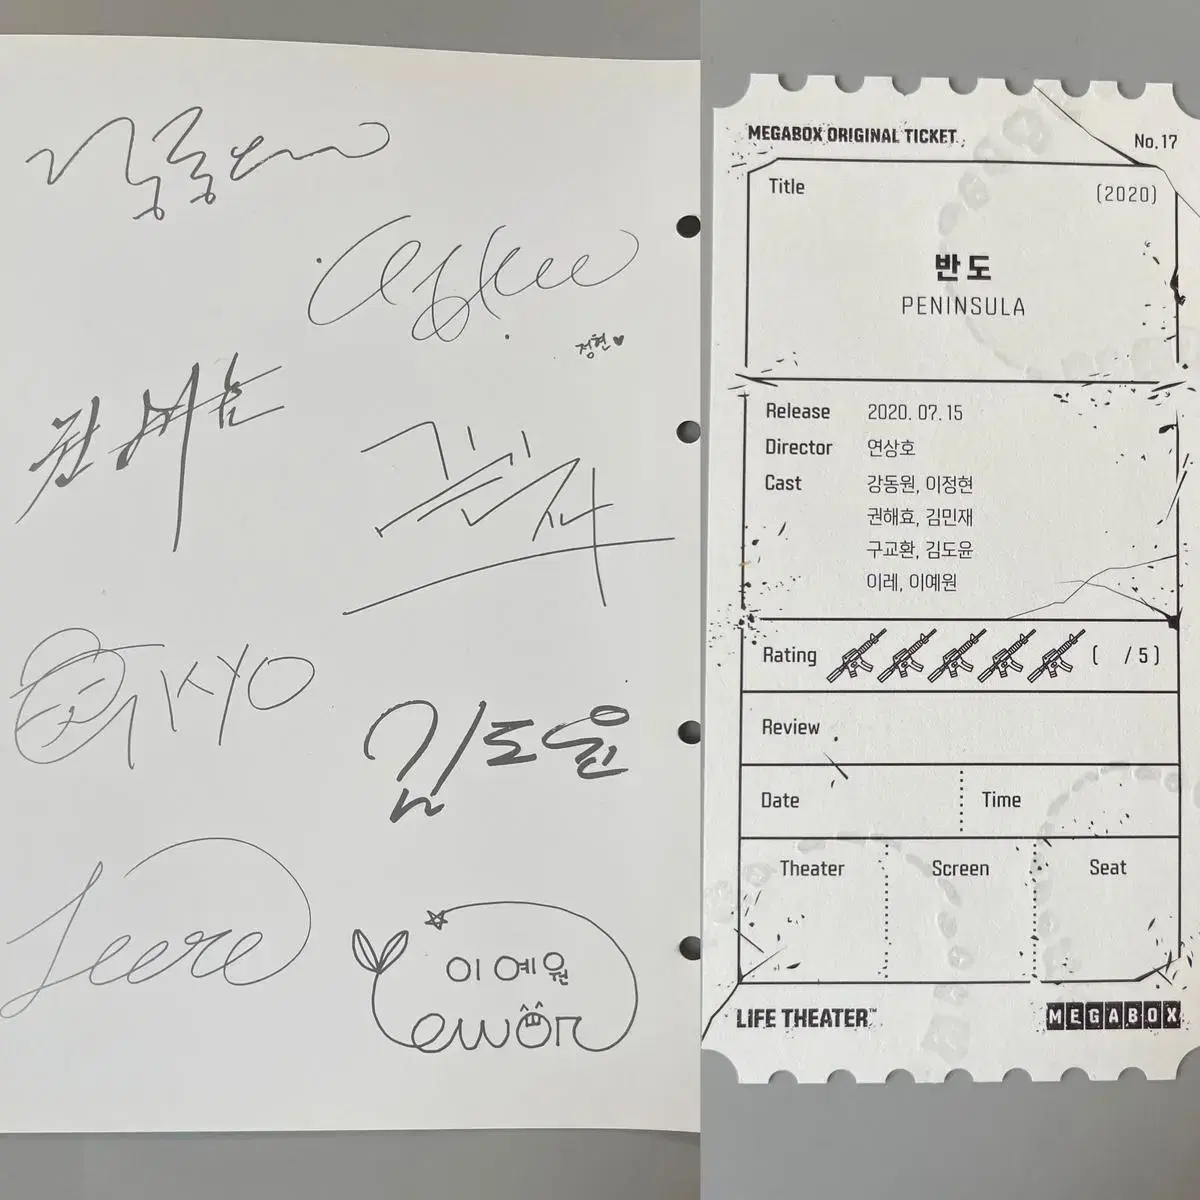 정현♥
김도윤
이예원
ewon
MEGABOX ORIGINAL TICKET
No.17
Title
(2020)
반도
PENINSULA
Release 2020. 07. 15
Director 연상호
Cast 강동원, 이정현
권해효, 김민재
구교환, 김도윤
이레, 이예원
Rating ( / 5 )
Review
Date Time
Theater Screen Seat
LIFE THEATER™
MEGABOX